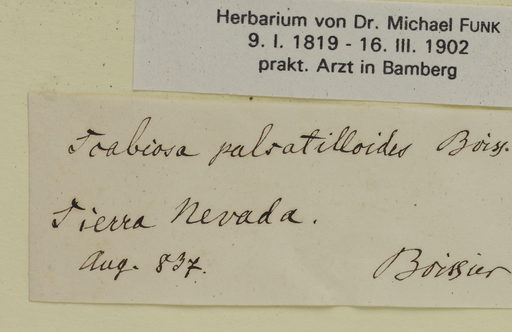 Herbarium von Dr. Michael FUNK
9. I. 1819 - 16. III. 1902
prakt. Arzt in Bamberg
Scabiosa pulsatilloides Boiss.
Sierra Nevada.
Aug. 837.
Boissier